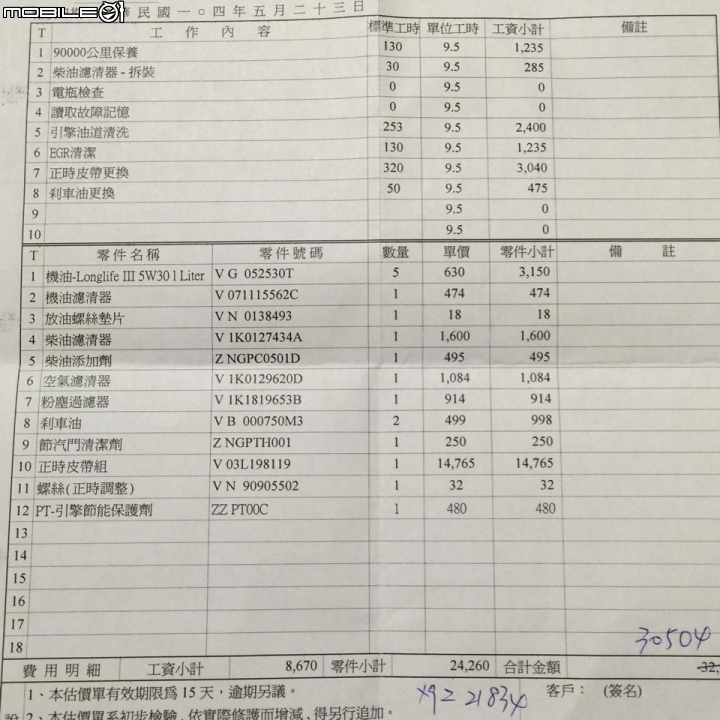 mobile01
華民國一○四年五月二十三日
T 工作內容 標準工時 單位工時 工資小計 備註
1 90000公里保養 130 9.5 1,235
2 柴油濾清器 - 拆裝 30 9.5 285
3 電瓶檢查 0 9.5 0
4 讀取故障記憶 0 9.5 0
5 引擎油道清洗 253 9.5 2,400
6 EGR清潔 130 9.5 1,235
7 正時皮帶更換 320 9.5 3,040
8 剎車油更換 50 9.5 475
9 9.5 0
10 9.5 0
T 零件名稱 零件號碼 數量 單價 零件小計 備註
1 機油-Longlife III 5W30 1 Liter V G 052530T 5 630 3,150
2 機油濾清器 V 071115562C 1 474 474
3 放油螺絲墊片 V N 0138493 1 18 18
4 柴油濾清器 V 1K0127434A 1 1,600 1,600
5 柴油添加劑 Z NGPC0501D 1 495 495
6 空氣濾清器 V 1K0129620D 1 1,084 1,084
7 粉塵過濾器 V 1K1819653B 1 914 914
8 剎車油 V B 000750M3 2 499 998
9 節汽門清潔劑 Z NGPTH001 1 250 250
10 正時皮帶組 V 03L198119 1 14,765 14,765
11 螺絲(正時調整) V N 90905502 1 32 32
12 PT-引擎節能保護劑 ZZ PT00C 1 480 480
13
14
15
16
17
18
30504
費用明細 工資小計 8,670 零件小計 24,260 合計金額 32,
1、本估價單有效期限為 15 天，逾期另議。 客戶： (簽名)
21834
2、本估價單係初步檢驗，依實際修護而增減，得另行追加。